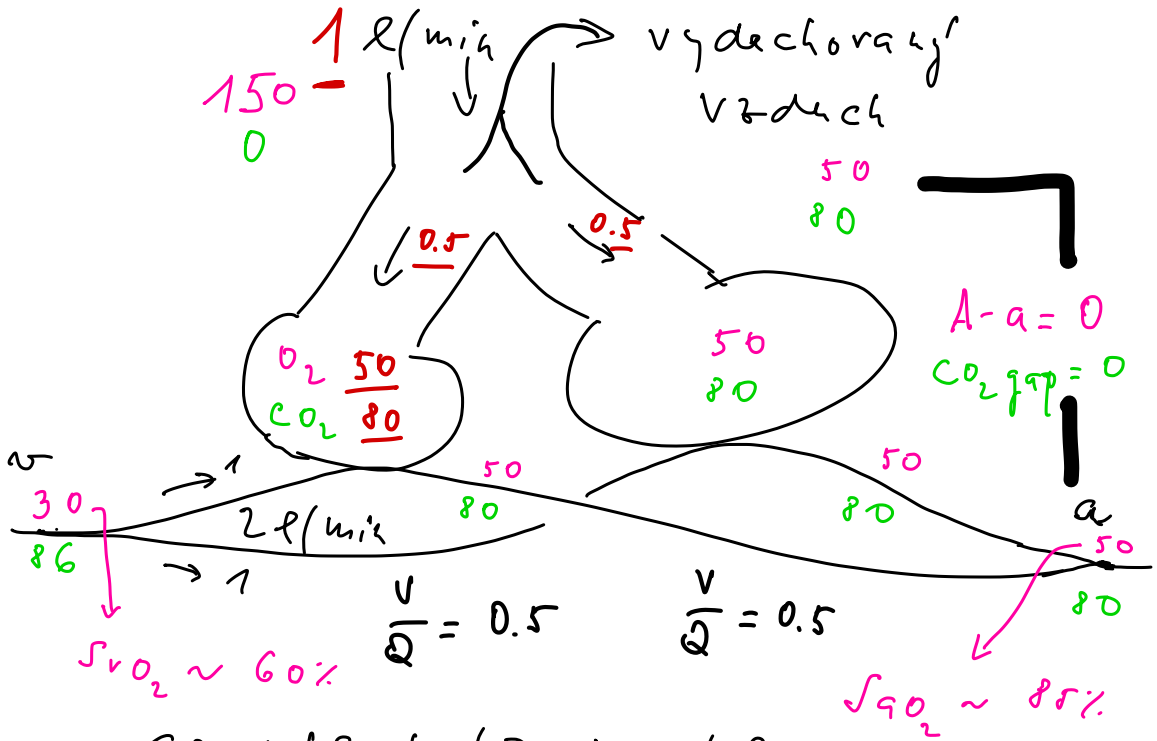 1 l/min
vydechovaný
vzduch
150
0
50
80
0.5
0.5
O2 50
CO2 80
50
80
A-a = 0
CO2 gap = 0
v
30
86
1
2 l/min
1
50
80
50
80
a
50
80
V/Q = 0.5
V/Q = 0.5
SvO2 ~ 60%
SaO2 ~ 85%